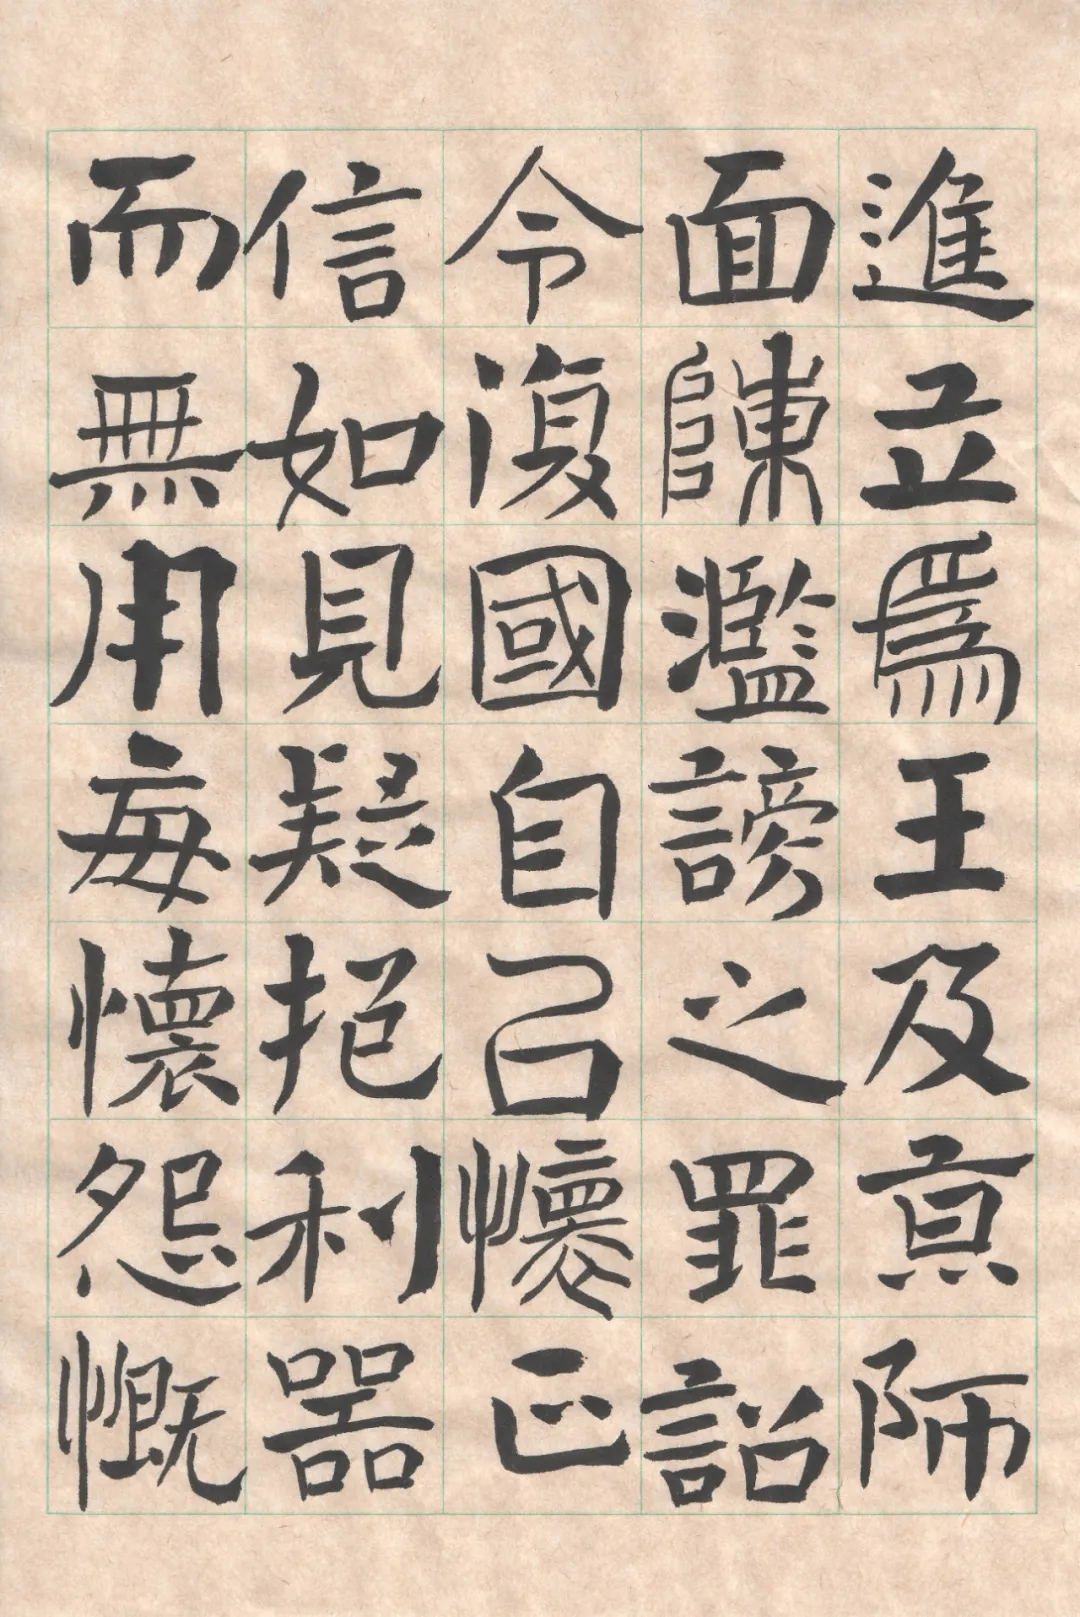 進立爲王及亰師
面陳濫謗之罪詔
令復國自己懷正
信如見疑抱利器
而無用每懷怨慨